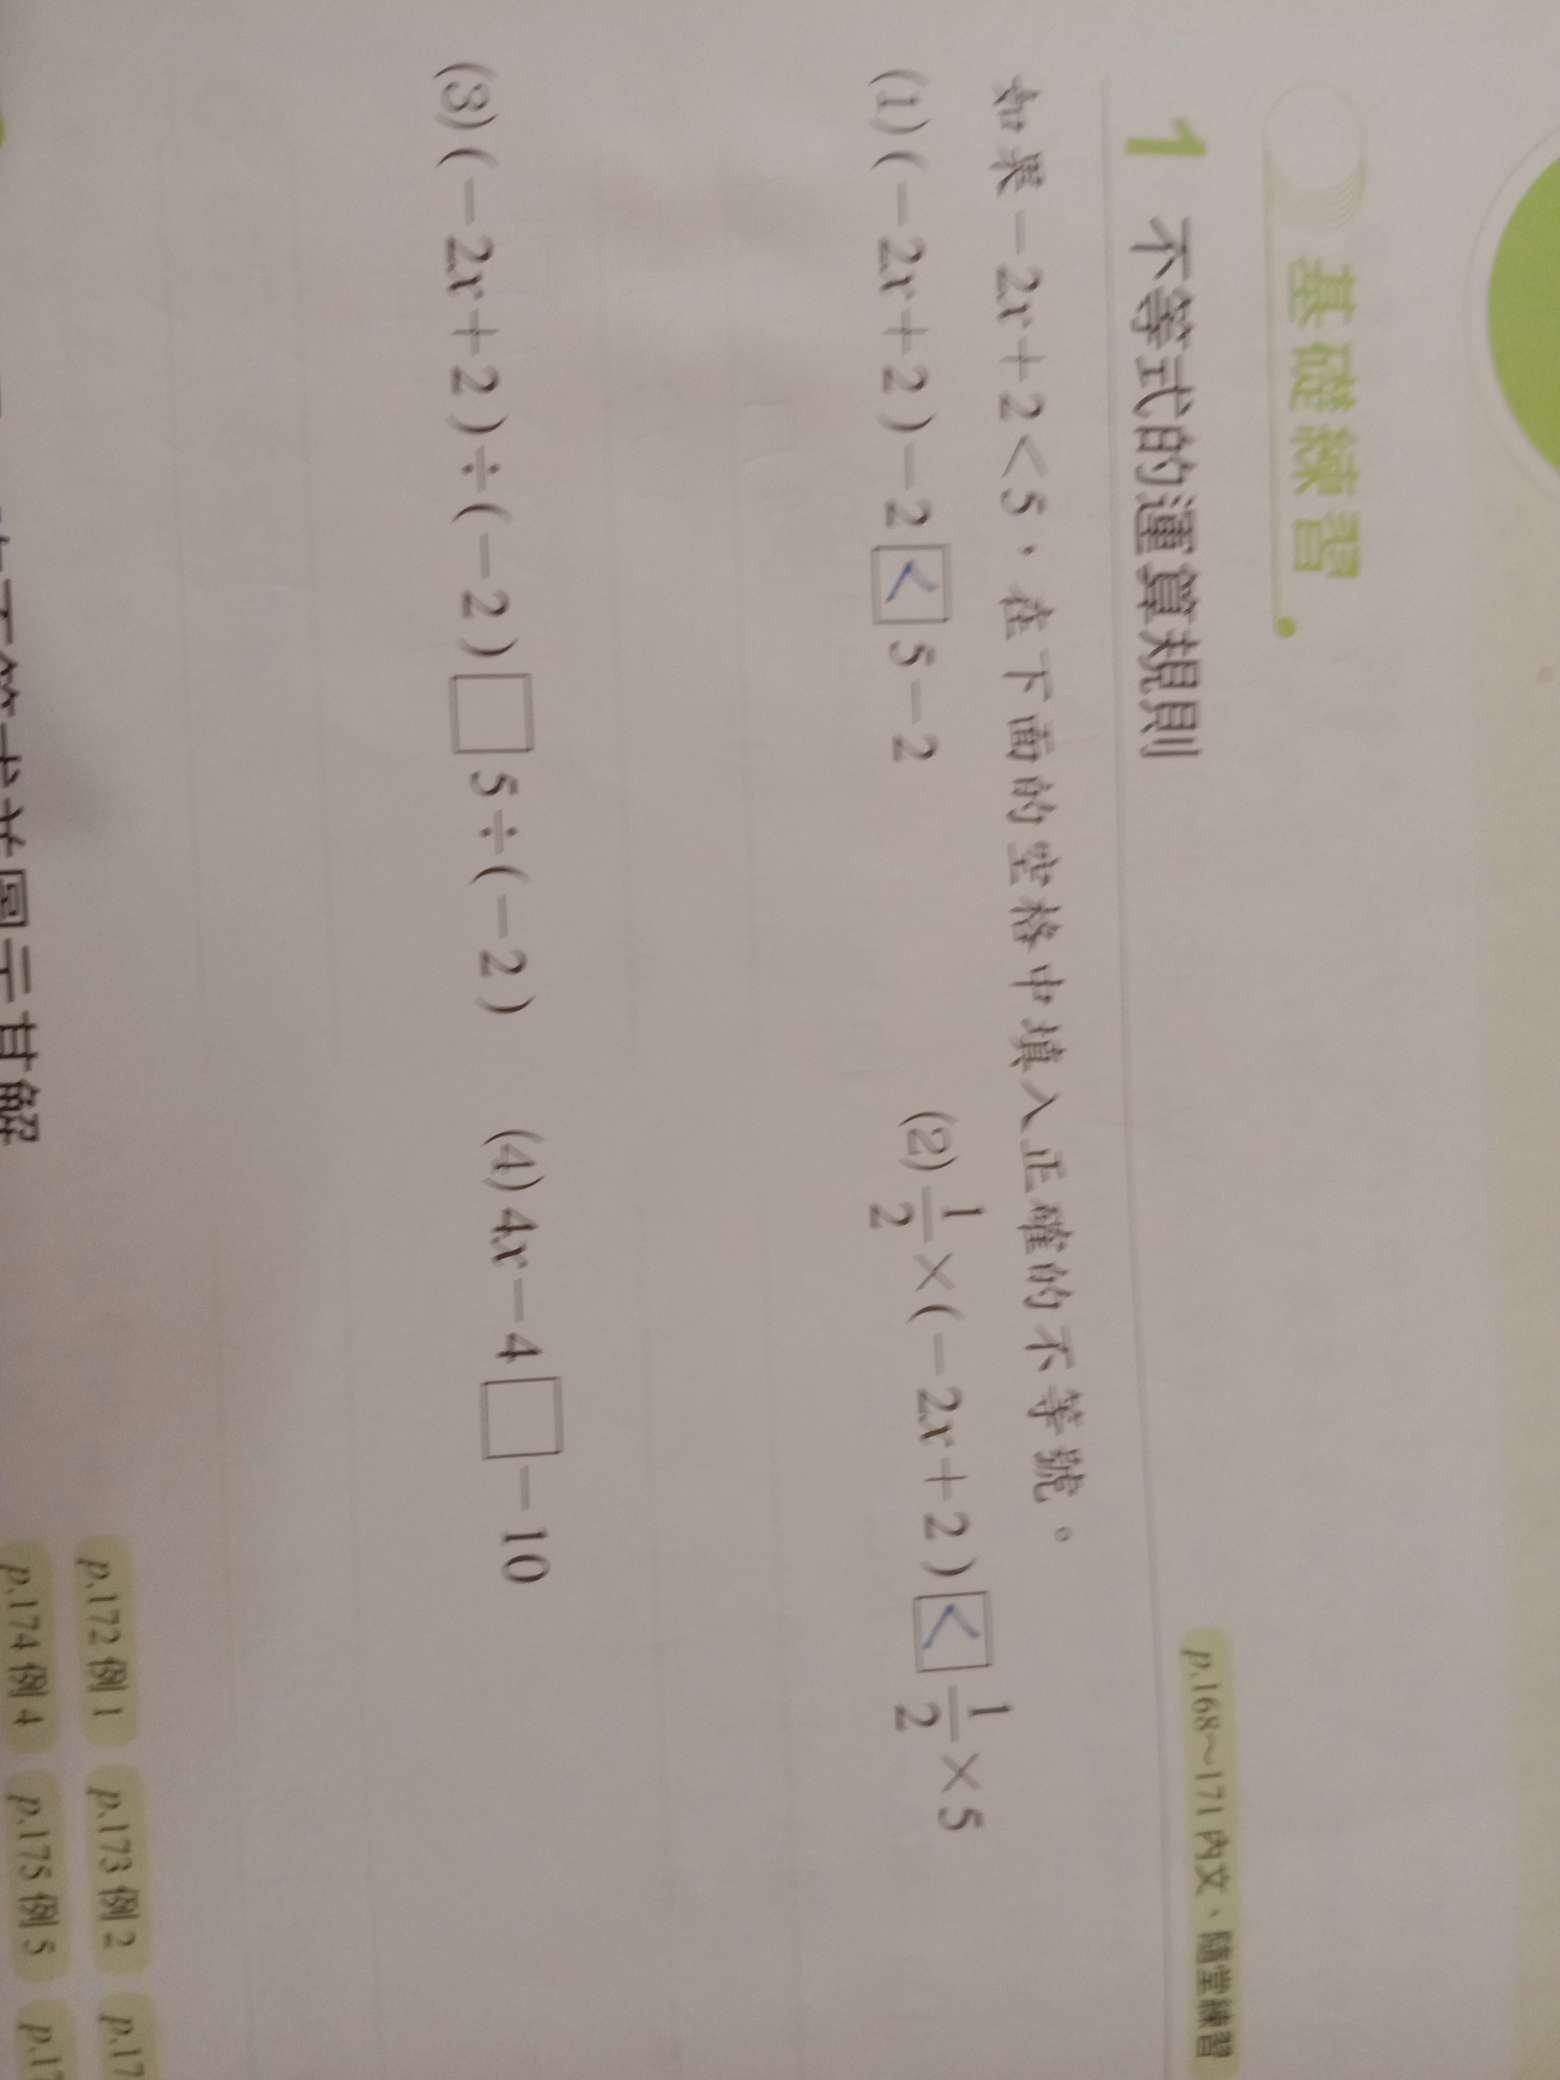 基礎練習
1 不等式的運算規則 p.168～171 內文、隨堂練習
如果－2x＋2＜5，在下面的空格中填入正確的不等號。
(1)(－2x＋2)－2＜5－2 (2)1/2×(－2x＋2)＜1/2×5
(3)(－2x＋2)÷(－2)□5÷(－2) (4)4x－4□－10
p.172 例 1 p.173 例 2 p.17
不等式並圖示其解 p.174 例 4 p.175 例 5 p.17